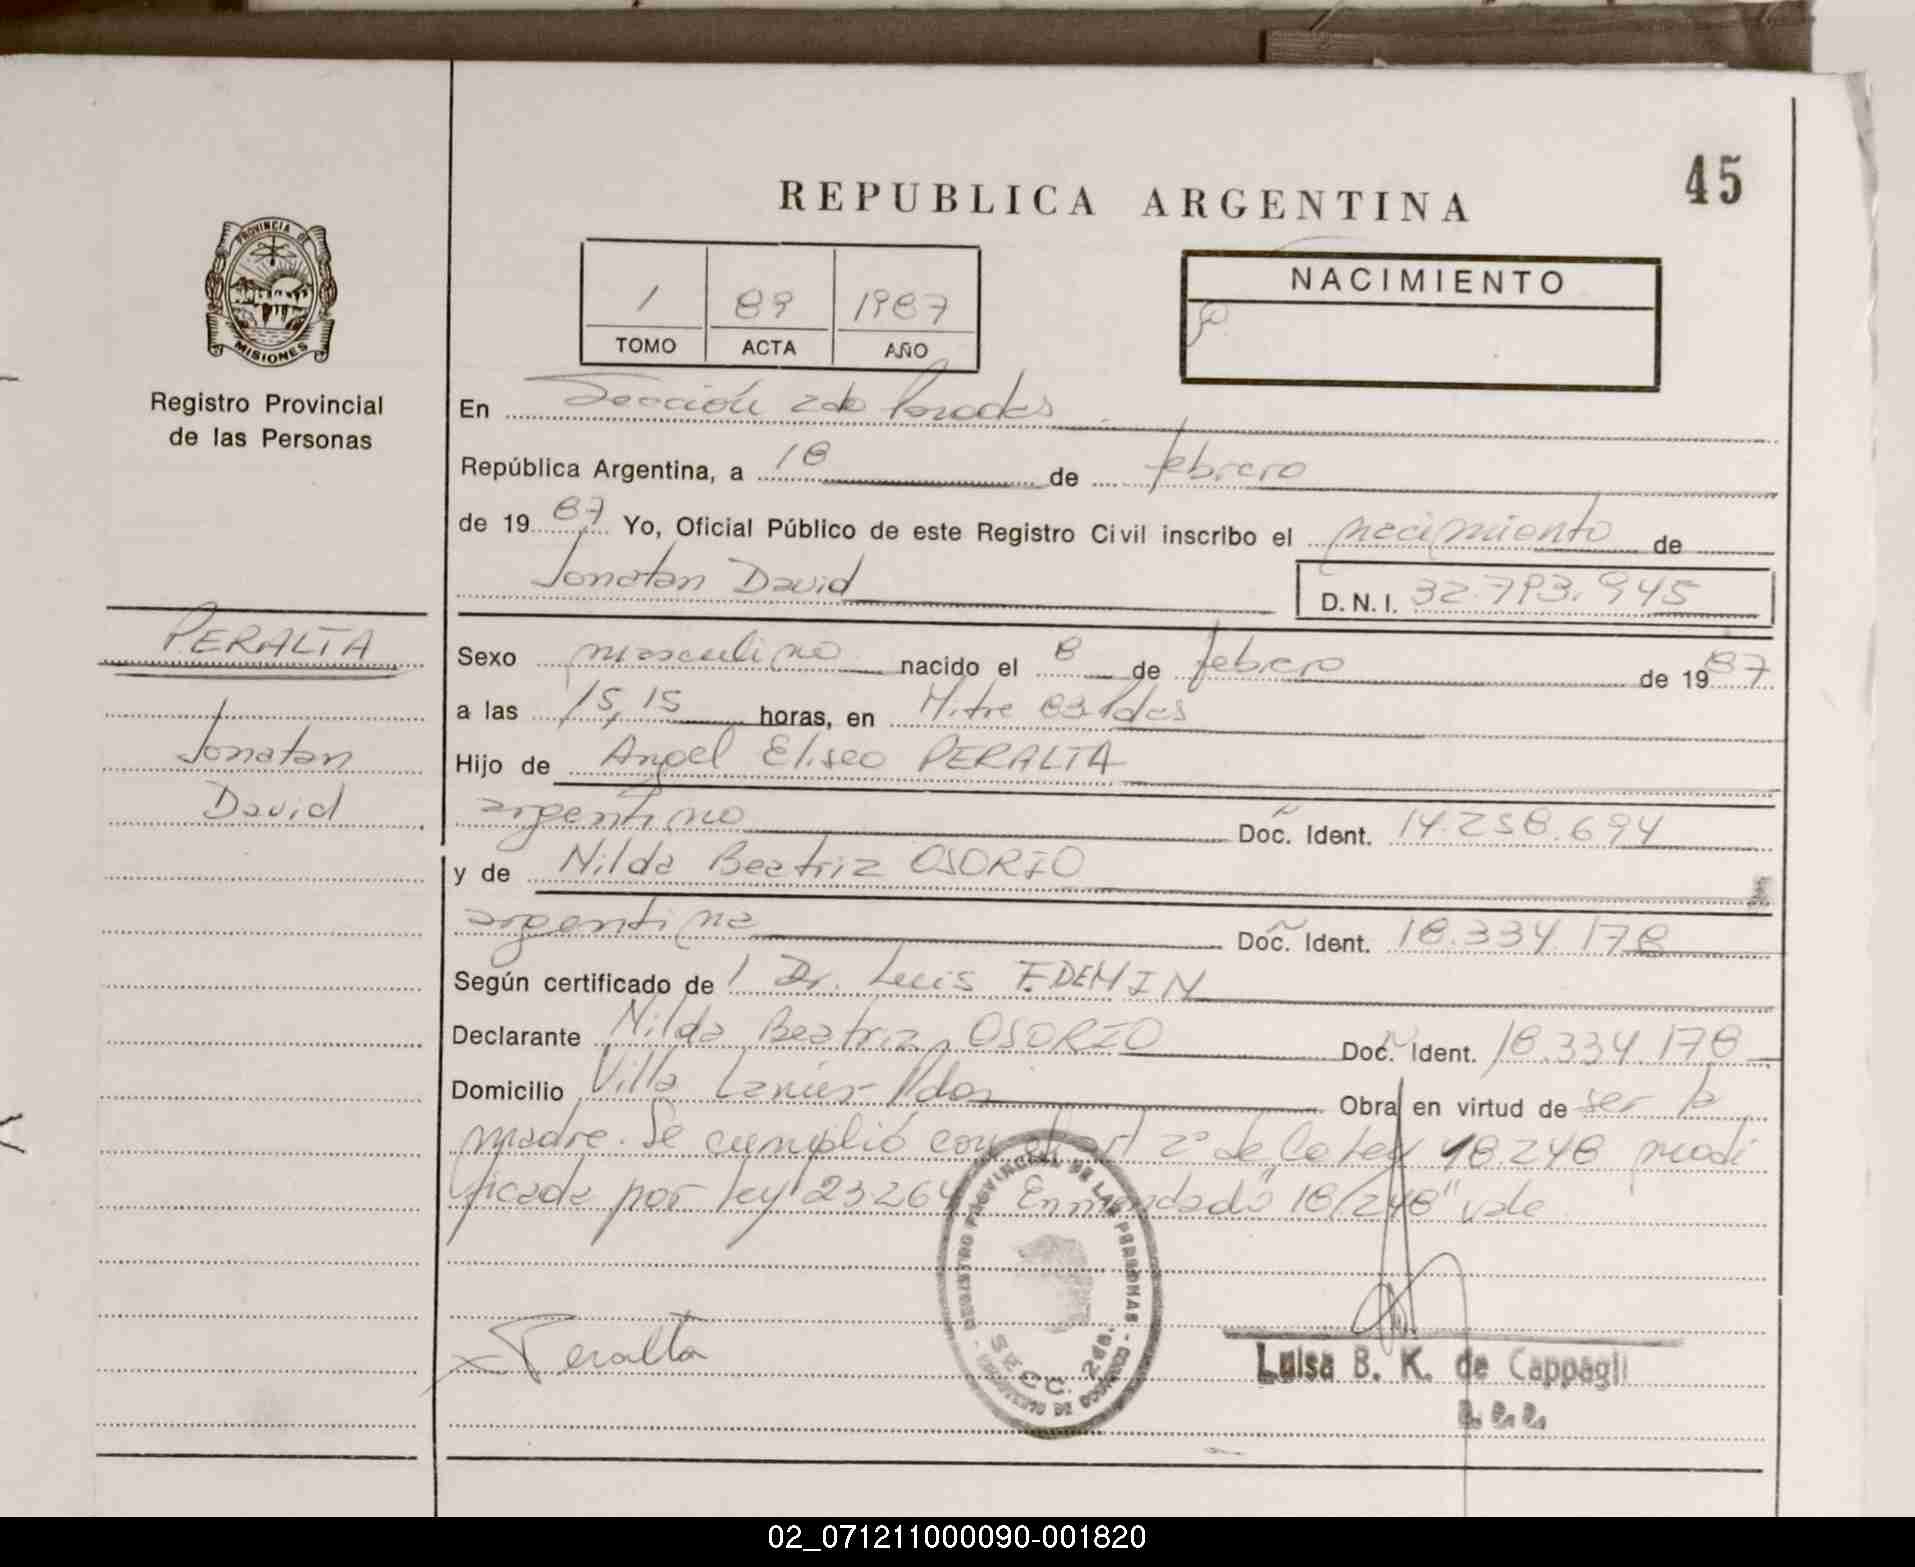 45
REPUBLICA ARGENTINA
PROVINCIA DE
MISIONES
Registro Provincial
de las Personas
1 89 1987
TOMO ACTA AÑO
NACIMIENTO
En Sección 2da Posadas
República Argentina, a 18 de febrero
de 1987 Yo, Oficial Público de este Registro Civil inscribo el nacimiento de
Jonatan David D.N.I. 32.793.945
PERALTA
Jonatan
David
Sexo masculino nacido el 8 de febrero de 1987
a las 15,15 horas, en Mitre 83 Pdas
Hijo de Angel Eliseo PERALTA
argentino Doc. Ident. 14.258.694
y de Nilda Beatriz OSORIO
argentina Doc. Ident. 18.334.178
Según certificado de l Dr. Luis F. DEMIN
Declarante Nilda Beatriz OSORIO Doc. Ident. 18.334.178
Domicilio Villa Lanús - Pdas Obra en virtud de ser la
madre. Se cumplió con el art 2º de la Ley 18.248 modi
ficada por ley 23264 Enmendado "18/248" vale
Peralta
REGISTRO PROVINCIAL DE LAS PERSONAS
SECC. 2da.
Luisa B. K. de Cappagli
02_071211000090-001820